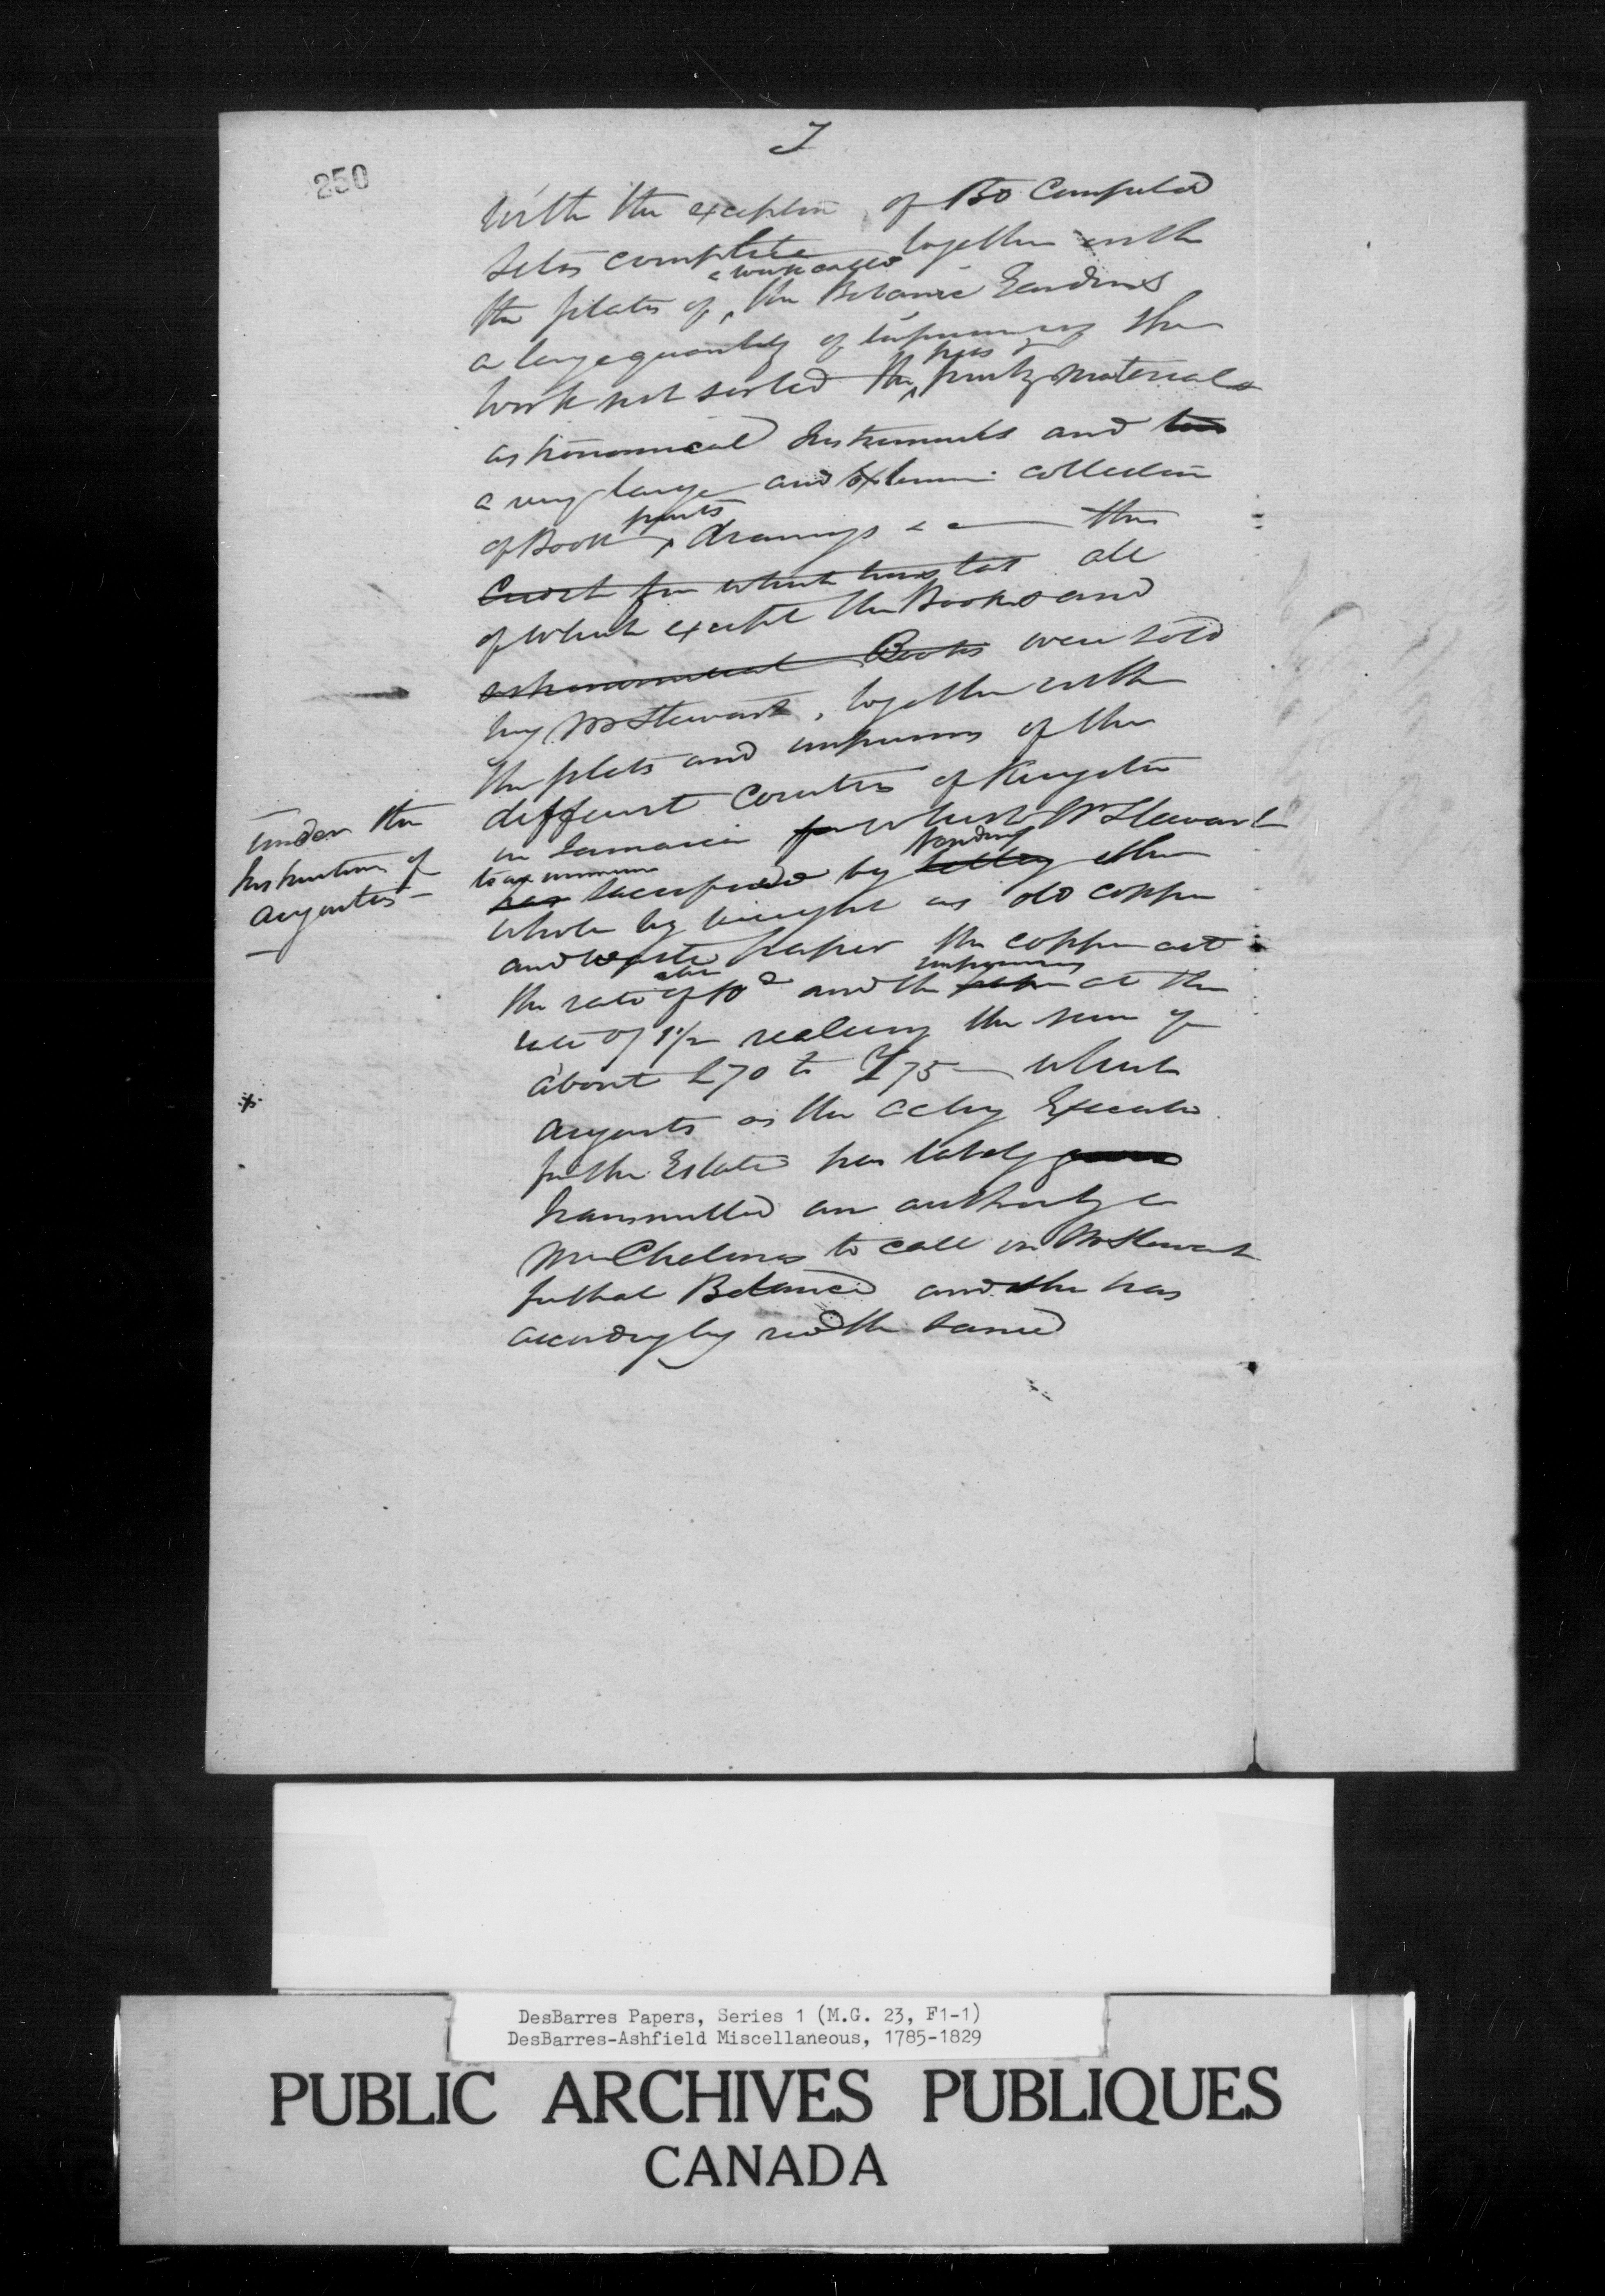 250
With the exception of 130 Compleat
sets complete together with
a work called
the plates of the Botanic Gardens
a large quantity of impressions of the
work not sorted the printg materials
press
astronomical Instruments and
a very large and Extensive collection
of Book drawings &c the
prints
for which has all
of which except the Books and
astronomical Books were sold
by Mr Stewart, together with
the plates and impressions of the
different Counties of Kingston
in Jamaica for which Mr Stewart
under the
Instructions of
Augustus
has sacrificed by selling the
whole by weight as old copper
and waste paper the copper at
the rate of 10d and the at the
impressions
rate of 1½ realising the sum of
about £70 to £75 which
Augusts as the acting Executor
for the Estate has lately
transmitted an authority to
Mr Chalmers to call on Mr Stewart
for that Balance and he has
accordingly recd the same
DesBarres Papers, Series 1 (M.G. 23, F1-1)
DesBarres-Ashfield Miscellaneous, 1785-1829
PUBLIC ARCHIVES PUBLIQUES
CANADA